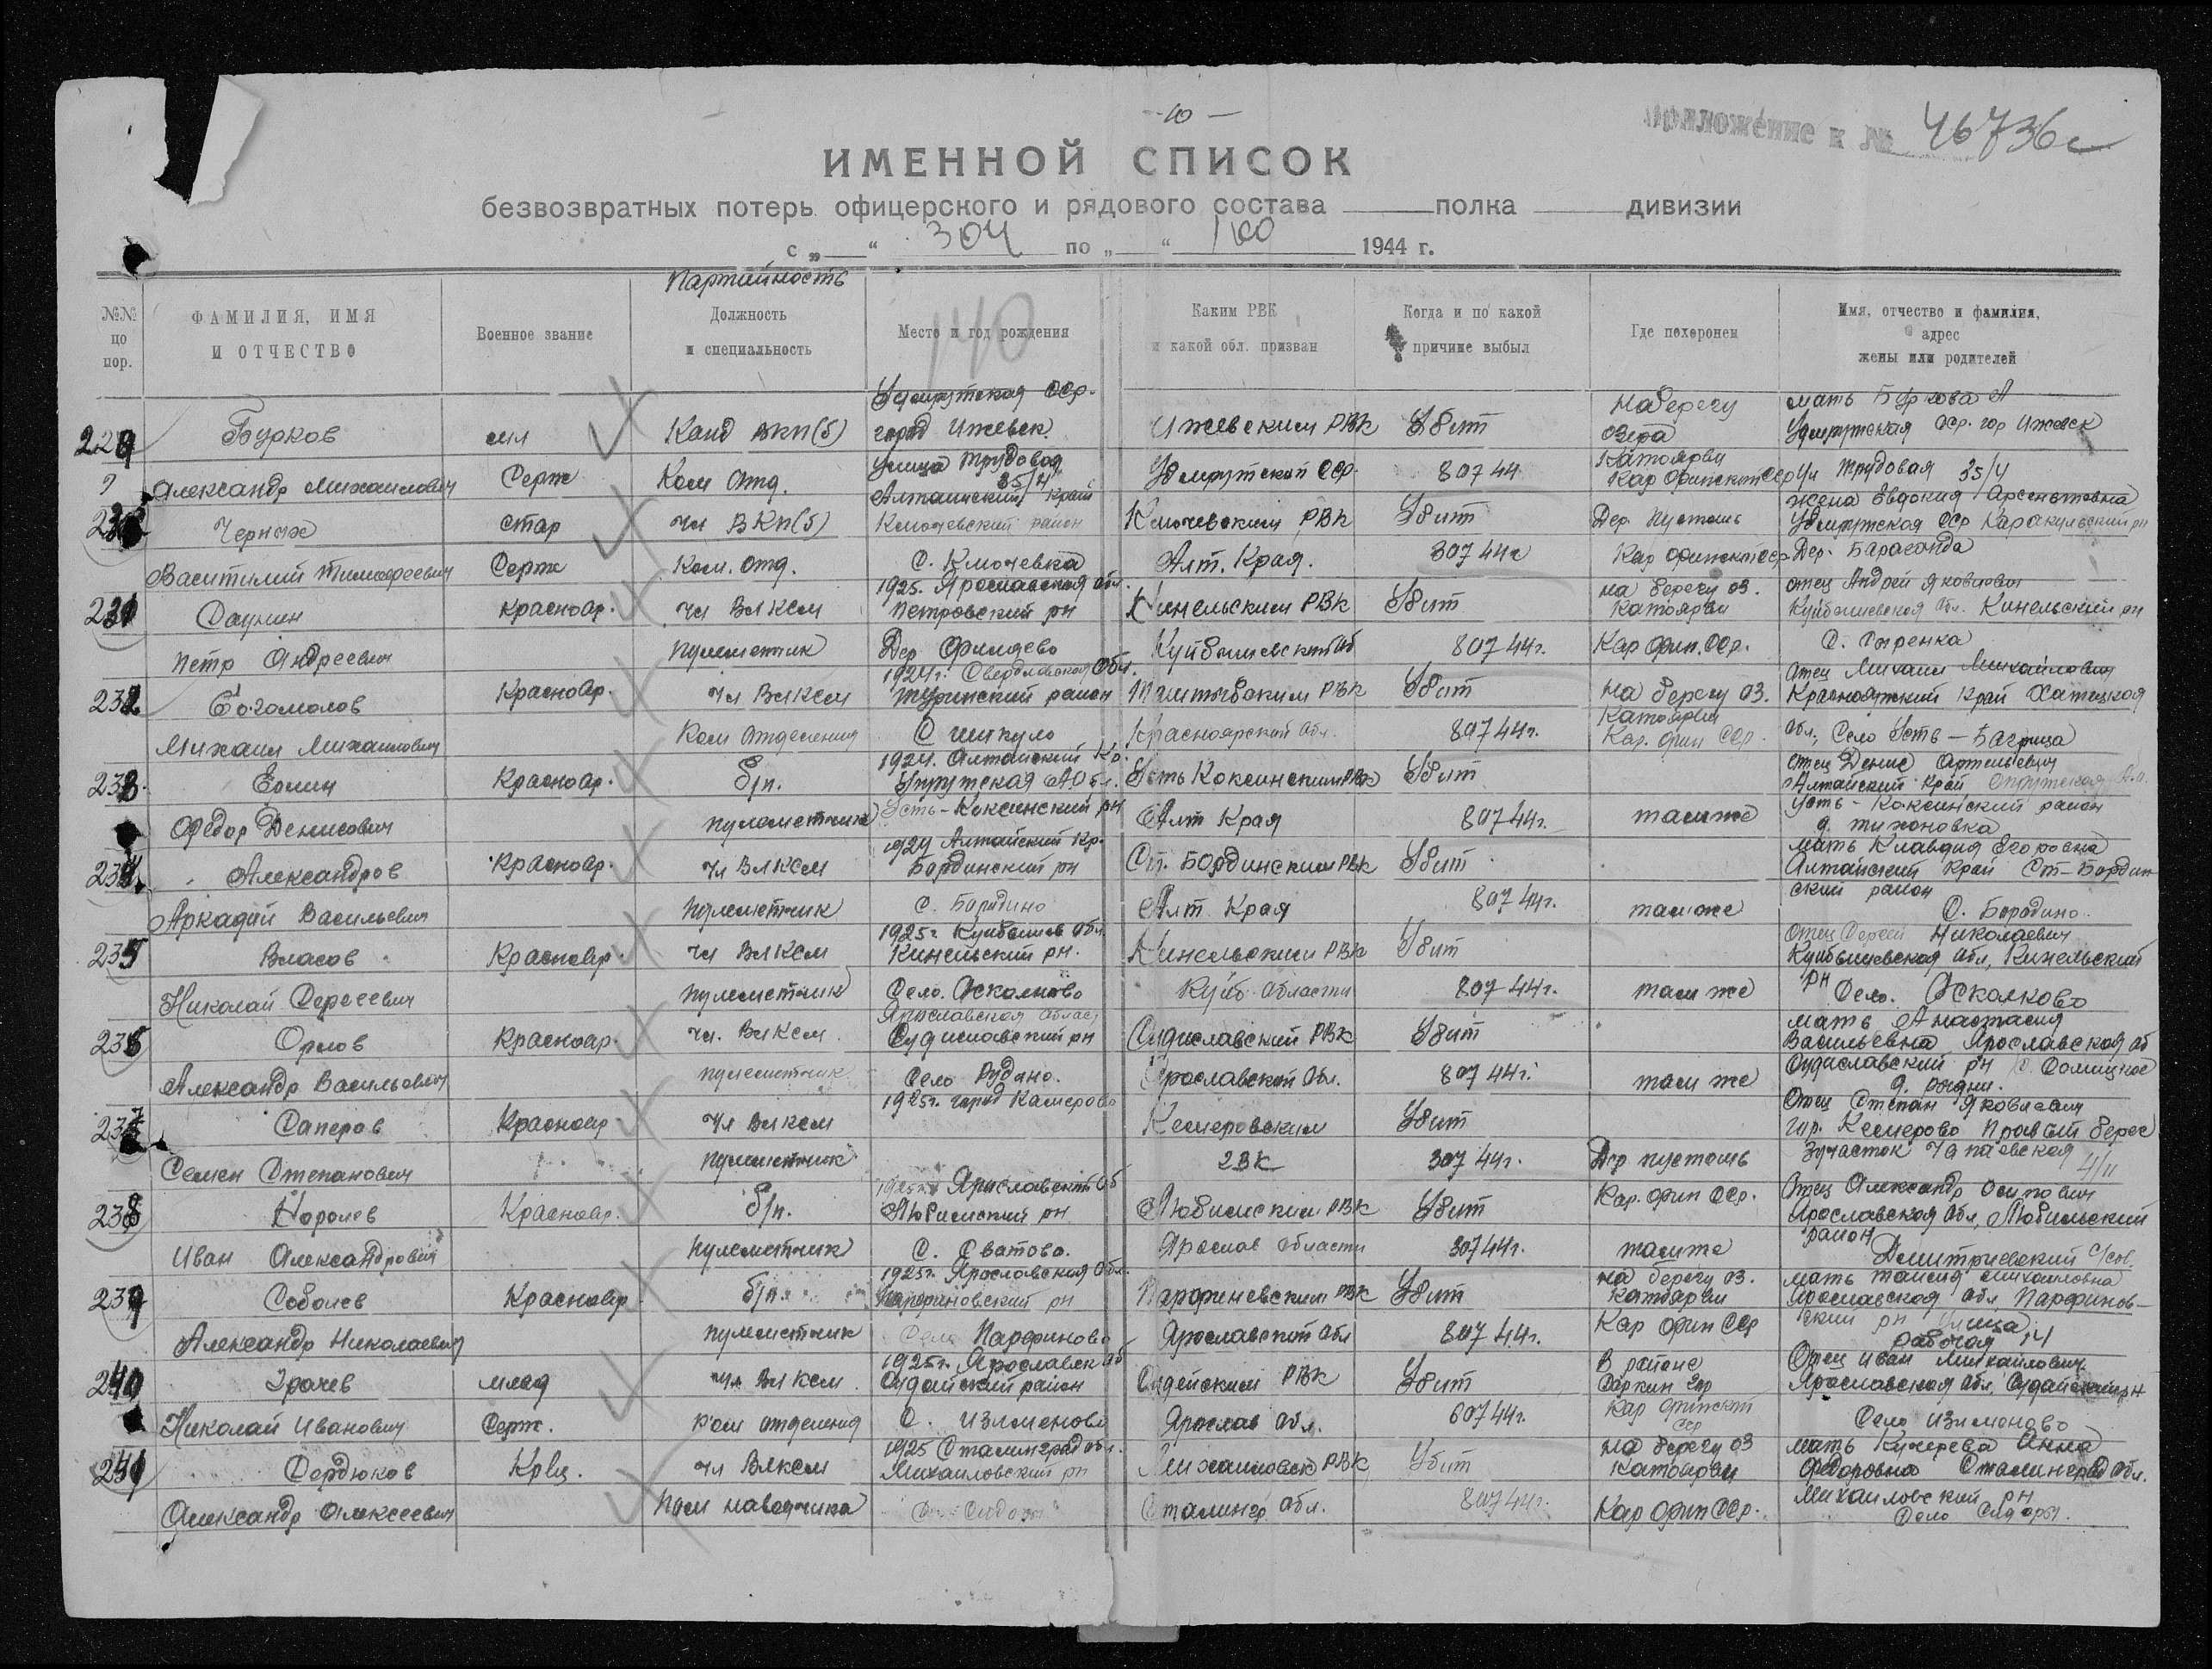 -10-
Приложение к № 46736с
ИМЕННОЙ СПИСОК
безвозвратных потерь офицерского и рядового состава ____ полка ____ дивизии
с „__“ 304 по „__“ 100 1944 г.
Партийность
140
№№ по пор. ФАМИЛИЯ, ИМЯ И ОТЧЕСТВО Военное звание Должность и специальность Место и год рождения Каким РВК и какой обл. призван Когда и по какой причине выбыл Где похоронен Имя, отчество и фамилия, адрес жены или родителей
Удмуртская ССР. на берегу мать Буркова А
229 Бурков мл Канд ВКП(б) город Ижевск Ижевским РВК Убит озера Удмуртская ССР. гор Ижевск
улица Трудовая Катоярви
Александр Михаилович Серж Ком Отд. 35/4 Удмуртской ССР. 807 44 Кар Финской ССР Ул Трудовая 35/4
Алтайский край жена Евдокия Арсентьевна
230 Черных стар чл ВКП(б) Ключевский район Ключевским РВК Убит Дер. Пустошь Удмуртская ССР Каракульский рн
Серж Ком. отд. С. Ключевка Алт. Края. 307 44г Кар Финской ССР Дер. Бараганда
1925. Ярославская обл. на берегу оз. отец Андрей Яковлевич
231 Даунин Красноар. чл ВЛКСМ Петровский рн Кинельским РВК Убит Катоярви Куйбышевская обл. Кинельский рн
Петр Андреевич пулеметчик Дер Куйбышевской об 807 44г. Кар Фин. ССР. С. Сыренка
1924г. Свердловская обл. отец Михаил Михайлович
232 Богомолов Красноар. чл ВЛКСМ Туринский район РВК Убит на берегу оз. Красноярский край
Катоярви
Михаил Михаилович Ком отделения С Красноярской обл. 807 44г. Кар. Фин ССР. обл, Село Усть-
1924. Алтайский Кр. отец Денис Артемьевич
233. Ёлшин Красноар. б/п. А.Обл. Усть Коксинским РВК Убит Алтайский край
Усть-Коксинский рн Усть-Коксинский район
Федор Денисович пулеметчик Алт Края 807 44г. там же д. Тихоновка
1924 Алтайский Кр. мать Клавдия Егоровна
234. Александров Красноар. чл ВЛКСМ Бардинский рн Ст. Бардинским РВК Убит Алтайский край Ст-Бардин
ский район
Аркадий Васильевич пулеметчик с. Бородино Алт. Края 807 44г. там же С. Бородино.
1925г Куйбышев обл. отец Сергей Николаевич
235 Власов Красноар. чл ВЛКСМ Кинельский рн. Кинельским РВК Убит Куйбышевская обл, Кинельский
рн
Николай Сергеевич пулеметчик Село. Куйб области 807 44г. там же Село.
Ярославская област мать Анастасия
236 Орлов Красноар. чл. ВЛКСМ Судиславский рн Судиславский РВК Убит Васильевна Ярославская об
Судиславский рн
Александр Васильевич пулеметчик Село Ярославской обл. 807 44г. там же
1925г. город Камерово Отец Степан Яковлевич
237 Саперов Красноар чл ВЛКСМ Кемеровским Убит гор. Кемерово Правый берег
Семен Степанович пулеметчик 2ВК 307 44г. Д-р пустошь 3участок Чапаевская 4/11
1925г. Ярославской об Отец Александр Осипович
238 Королев Красноар. б/п. Любимский рн Любимским РВК Убит Кар. Фин ССР. Ярославская обл, Любимский
район
Иван Александрович пулеметчик С. Сватово. Ярослав области 307 44г. там же Дмитриевский с/сов.
1925г. Ярославская обл. на берегу оз. мать Таисия Михаиловна
239 Соболев Красноар б/п. Парфиновский рн Парфиневским РВК Убит Катоярви Ярославская обл Парфинов-
ский рн улица
Александр Николаевич пулеметчик Село Парфиново Ярославской обл 807 44г. Кар Фин ССР Рабочая 14
1925г. Ярославск об В районе Отец Иван Михаилович
240 Грачев млад чл ВЛКСМ Судайский район Судейским РВК Убит Ярославская обл, Судайский рн
Николай Иванович Серж. Ком отделения С. Изименово Ярослав обл. 607 44г. Кар Финской ССР Село Изименово
1925 Сталинград обл. на берегу оз мать Кучерева Анна
241 Сердюков Крец. чл ВЛКСМ Михаиловский рн Михаиловск РВК Убит Катоярви Федоровна Сталинград обл.
Михаиловский рн
Александр Алексеевич Пом наводчика Сталингр. обл. 807 44г. Кар Фин ССР. Село Сидоры.